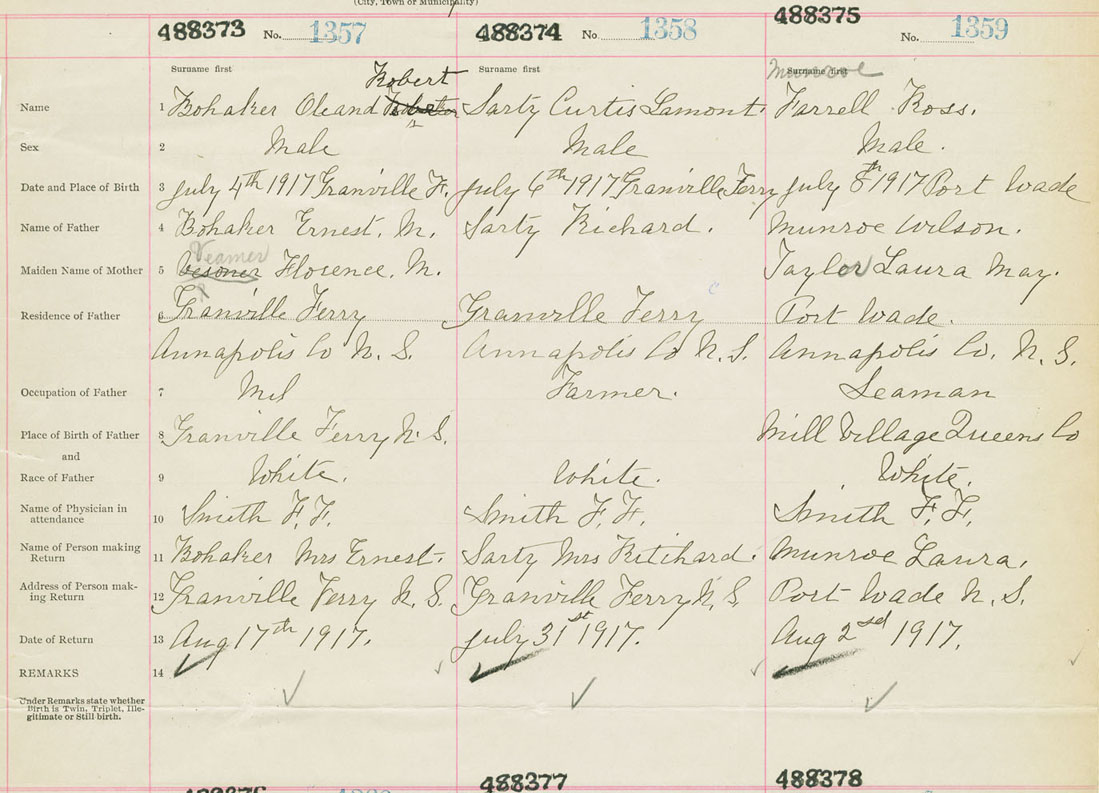 (City, Town or Municipality)
488373 No. 1357 488374 No 1358 488375 No. 1359
Surname first Surname first Surname first
Robert Munroe
Name 1 Bohaker Oleand Sarty Curtis Lamont. Farrell Ross.
Sex 2 Male Male Male.
Date and Place of Birth 3 July 4th 1917 Granville F. July 6th 1917 Granville Ferry July 8th 1917 Port Wade
Name of Father 4 Bohaker Ernest. M. Sarty Richard. Munroe Wilson.
Veamer
Maiden Name of Mother 5 Vesoner Florence. M. Taylor Laura May.
Residence of Father 6 Granville Ferry Granville Ferry Port Wade.
Annapolis Co N. S. Annapolis Co N. S. Annapolis Co. N. S.
Occupation of Father 7 Farmer. Seaman
Place of Birth of Father 8 Granville Ferry N. S. Mill Village Queens Co
and
Race of Father 9 White. White. White.
Name of Physician in attendance 10 Smith F. F. Smith F. F. Smith F. F.
Name of Person making Return 11 Bohaker Mrs Ernest. Sarty Mrs Ritchard. Munroe Laura.
Address of Person making Return 12 Granville Ferry N. S. Granville Ferry N. S. Port Wade N. S.
Date of Return 13 Aug 17th 1917. July 31st 1917. Aug 2sd 1917.
REMARKS 14
Under Remarks state whether
Birth is Twin, Triplet, Ille-
gitimate or Still birth.
488376 488377 488378